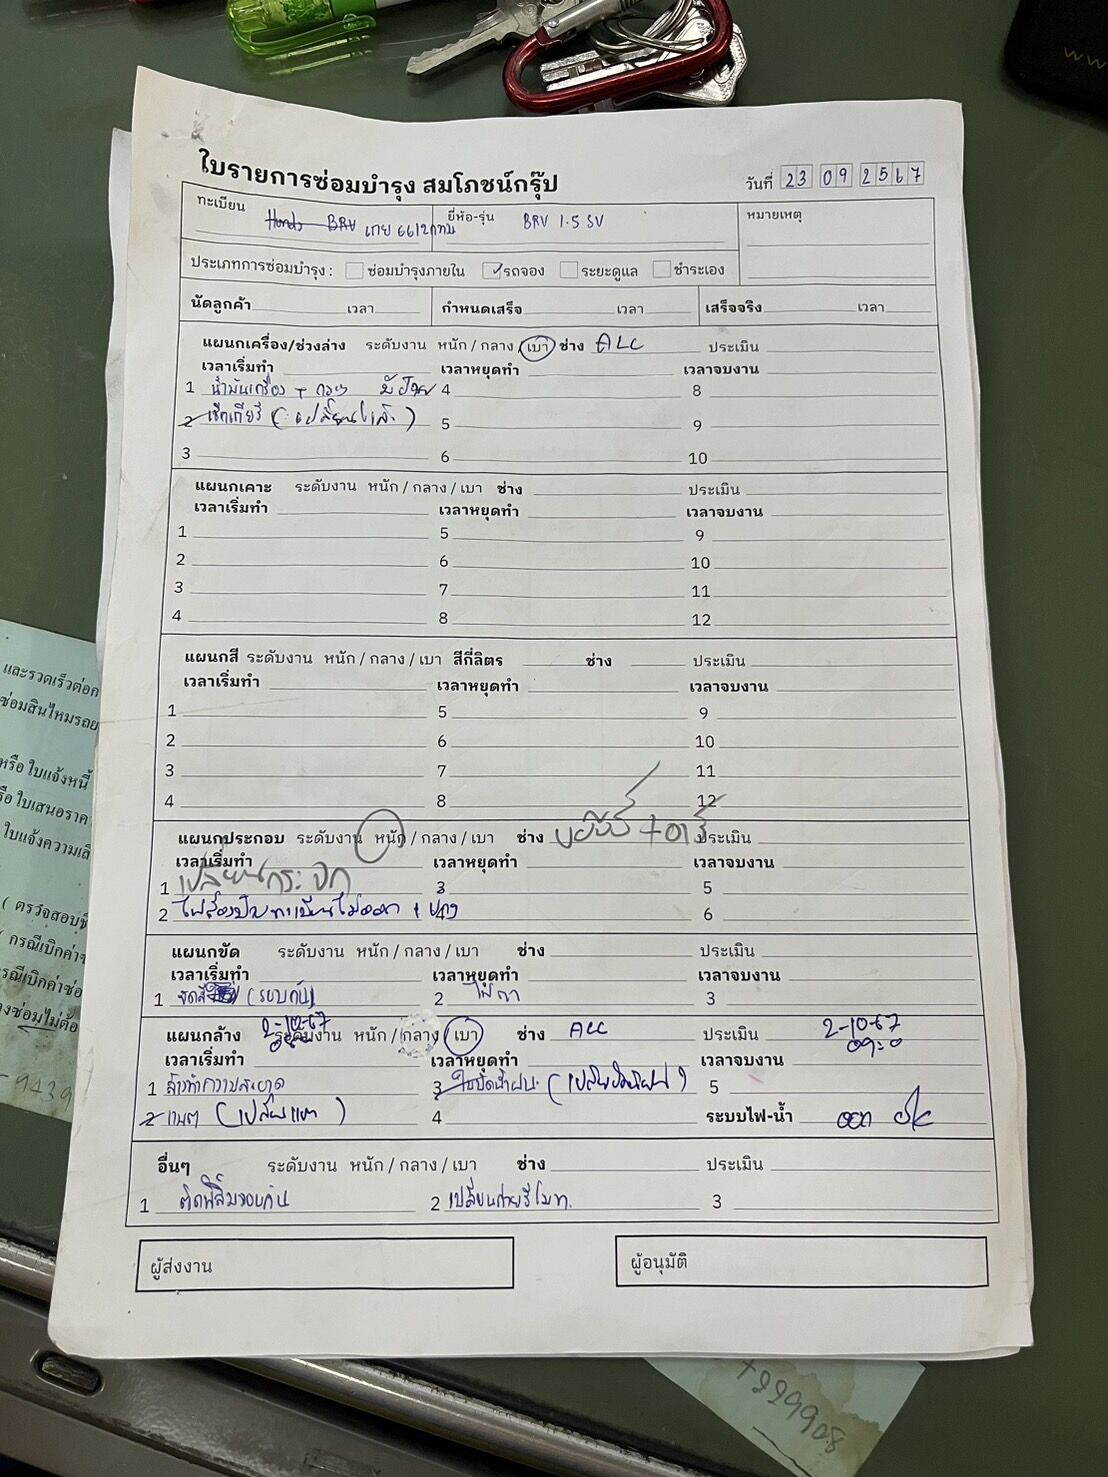 ใบรายการซ่อมบำรุง สมโภชน์กรุ๊ป
วันที่ 23 09 2567
ทะเบียน Honda BRV เกย 6612กทม ยี่ห้อ-รุ่น BRV 1.5 SV หมายเหตุ
ประเภทการซ่อมบำรุง : ซ่อมบำรุงภายใน ✓ รถจอง ระยะดูแล ชำระเอง
นัดลูกค้า เวลา กำหนดเสร็จ เวลา เสร็จจริง เวลา
แผนกเครื่อง/ช่วงล่าง ระดับงาน หนัก / กลาง / เบา ช่าง ALC ประเมิน
เวลาเริ่มทำ เวลาหยุดทำ เวลาจบงาน
1 น้ำมันเครื่อง + กรอง 4 8
2 เช็กเกียร์ (เปลี่ยนแล้ว) 5 9
3 6 10
แผนกเคาะ ระดับงาน หนัก / กลาง / เบา ช่าง ประเมิน
เวลาเริ่มทำ เวลาหยุดทำ เวลาจบงาน
1 5 9
2 6 10
3 7 11
4 8 12
แผนกสี ระดับงาน หนัก / กลาง / เบา สีกี่ลิตร ช่าง ประเมิน
เวลาเริ่มทำ เวลาหยุดทำ เวลาจบงาน
1 5 9
2 6 10
3 7 11
4 8 12
แผนกประกอบ ระดับงาน หนัก / กลาง / เบา ช่าง ประเมิน
เวลาเริ่มทำ เวลาหยุดทำ เวลาจบงาน
1 เปลี่ยนกระจก 3 5
2 ไฟส่องป้ายทะเบียนไม่ออก 4 6
แผนกขัด ระดับงาน หนัก / กลาง / เบา ช่าง ประเมิน
เวลาเริ่มทำ เวลาหยุดทำ เวลาจบงาน
1 ขัดสี (รอบคัน) 2 3
แผนกล้าง 2-10-67 ระดับงาน หนัก / กลาง / เบา ช่าง ALC ประเมิน 2-10-67
เวลาเริ่มทำ เวลาหยุดทำ เวลาจบงาน
1 ล้างทำความสะอาด 3 ใบปัดน้ำฝน (เปลี่ยน 5
2 แบต (เปลี่ยนแบต) 4 ระบบไฟ-น้ำ ok
อื่นๆ ระดับงาน หนัก / กลาง / เบา ช่าง ประเมิน
1 ติดฟิล์มรอบคัน 2 เปลี่ยนถ่านรีโมท. 3
ผู้ส่งงาน ผู้อนุมัติ
และรวดเร็วต่อก
ซ่อมสินไหมรถย
หรือ ใบแจ้งหนี้
รือ ใบเสนอราค
ใบแจ้งความเลิ
( ตรวจสอบชื่
( กรณีเบิกค่าจ
รณีเบิกค่าซ่อ
างซ่อมไม่ต้อ
9439